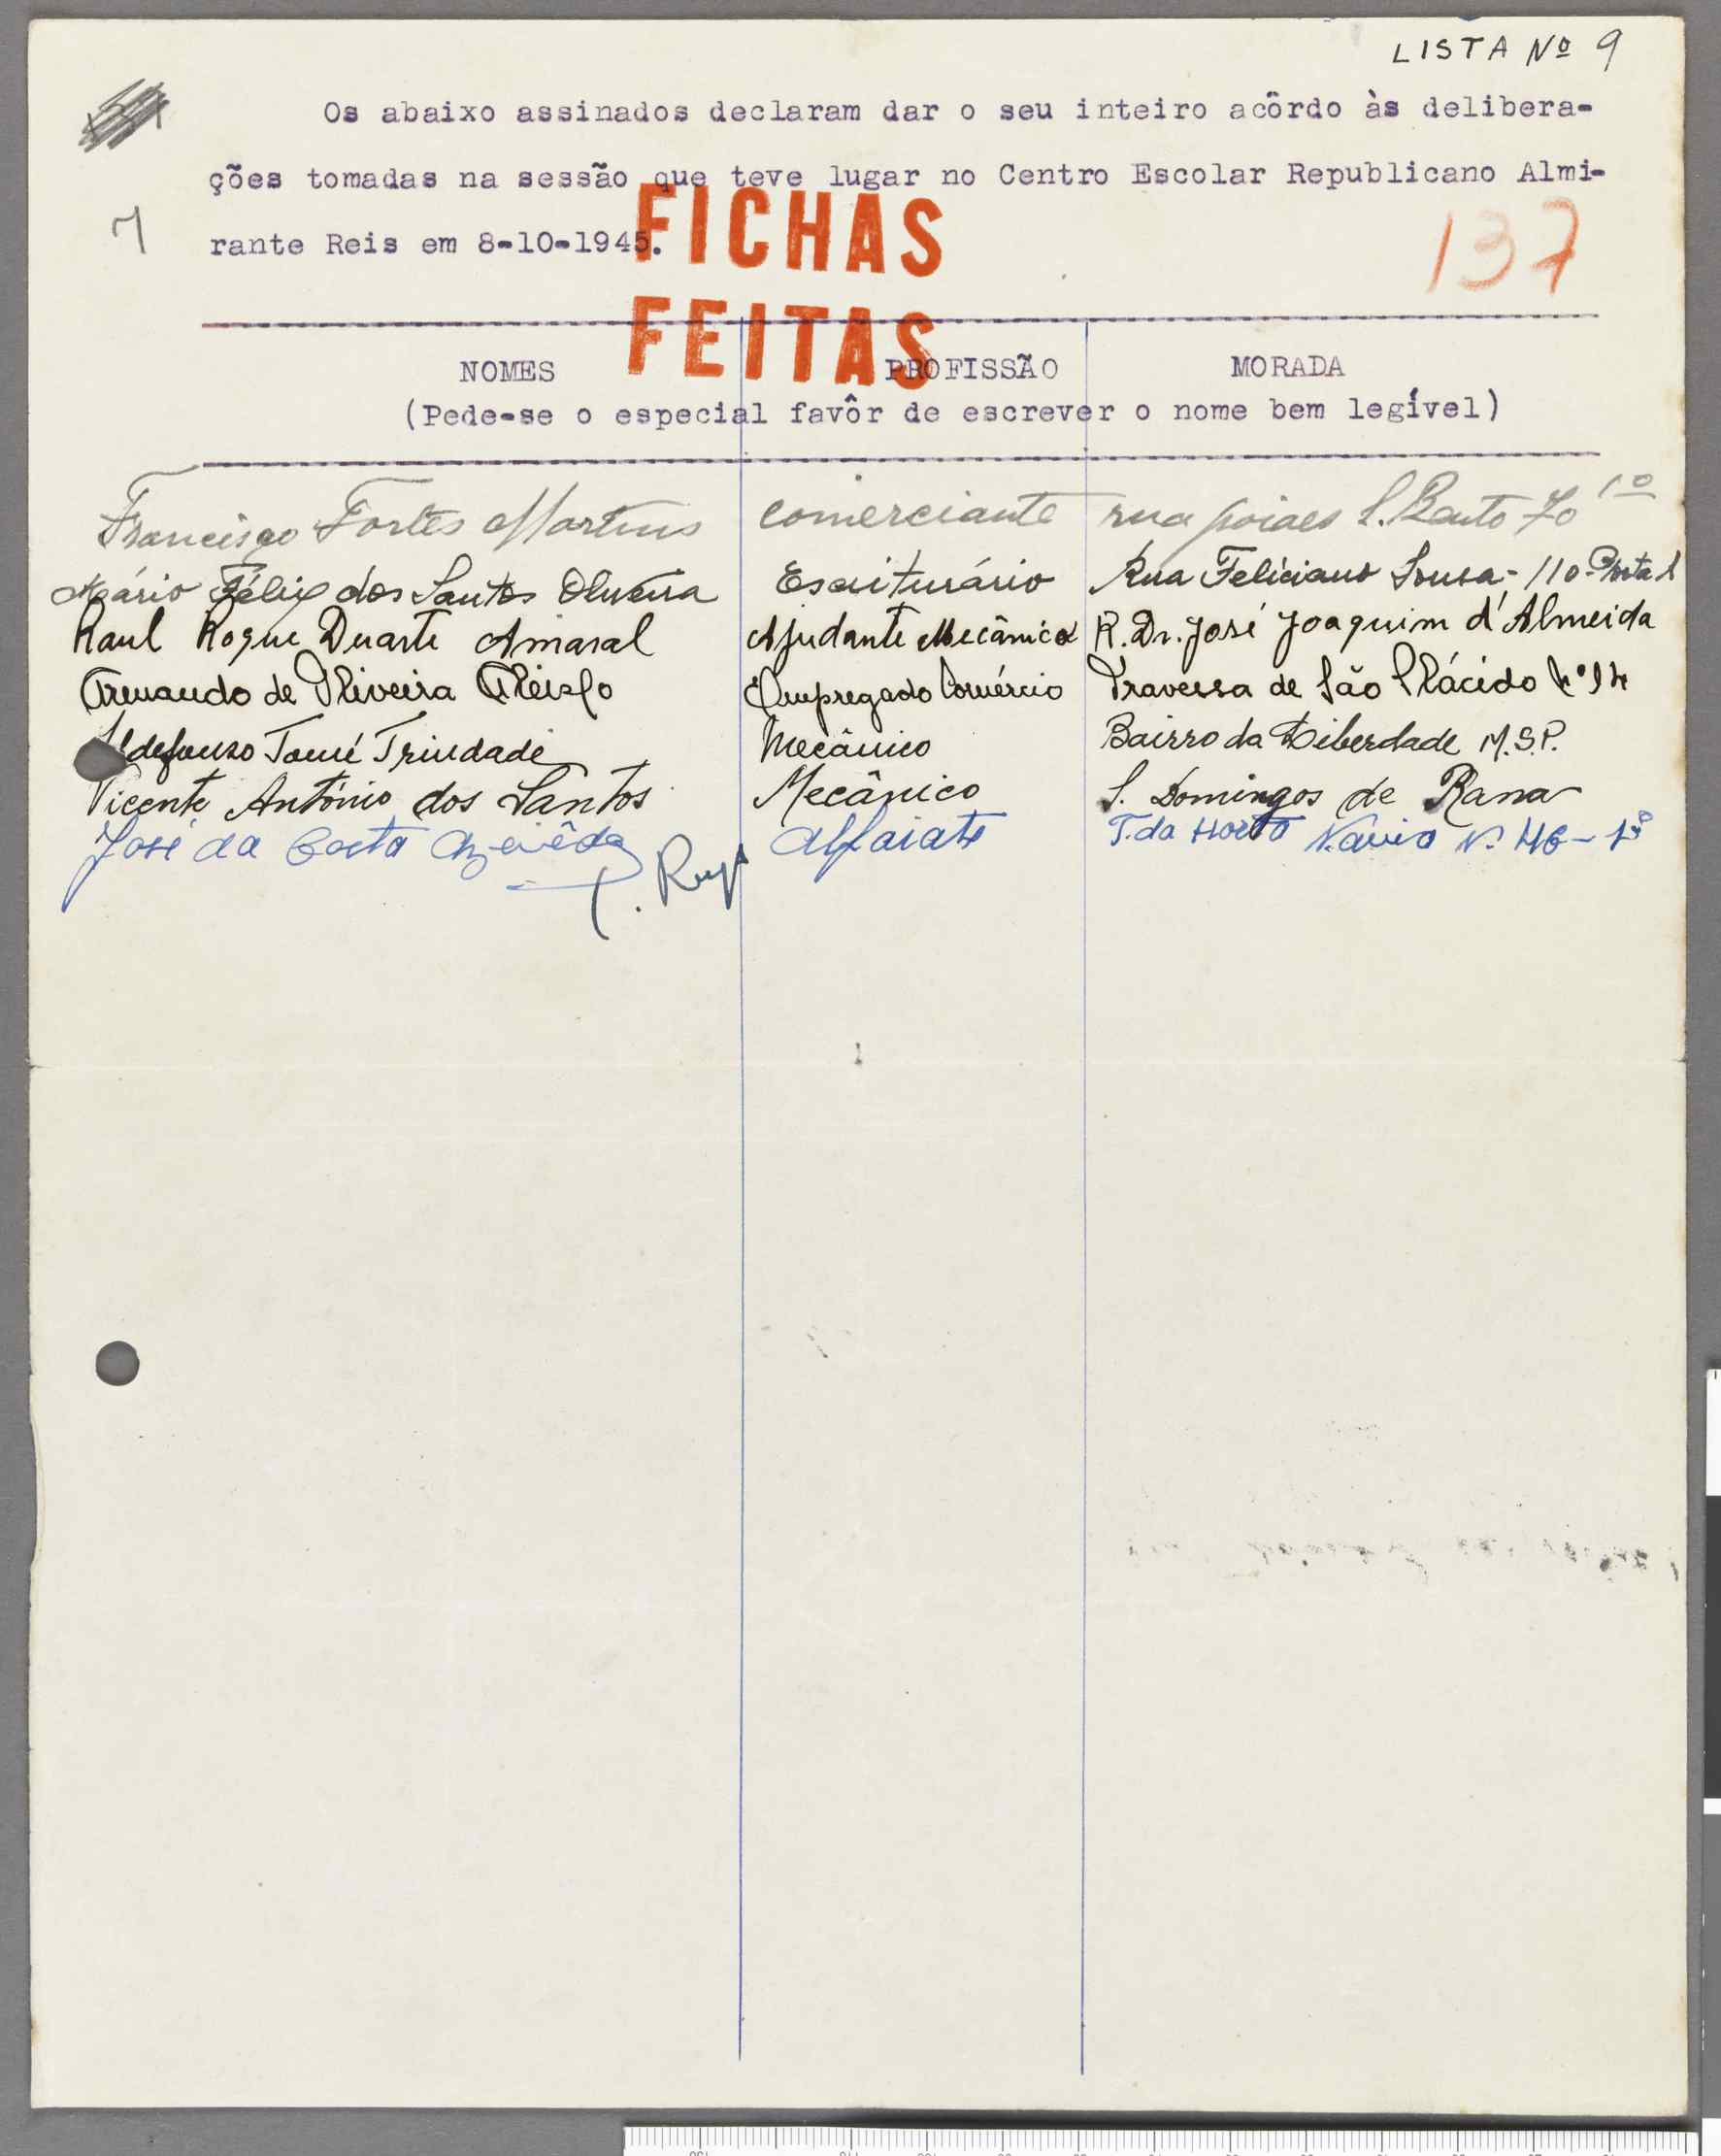 LISTA Nº 9
Os abaixo assinados declaram dar o seu inteiro acôrdo às delibera-
ções tomadas na sessão que teve lugar no Centro Escolar Republicano Almi-
7
rante Reis em 8-10-1945.
137
FICHAS
FEITAS
NOMES PROFISSÃO MORADA
(Pede-se o especial favôr de escrever o nome bem legível)
Francisco Fortes Martins comerciante rua poiaes S. Bento 70 1º
Mário Félix dos Santos Oliveira Escriturário Rua Feliciano Sousa - 110 - Porta
Raul Roque Duarte Amaral Ajudante Mecânico R. Dr. José Joaquim d'Almeida
Armando de Oliveira Aleixo Empregado Comércio Travessa de São Plácido Nº 14
Ildefonso Tomé Trindade Mecânico Bairro da Liberdade M.S.P.
Vicente António dos Santos Mecânico S. Domingos de Rana
José da Costa Azevêdo Alfaiate T. da Horta Návia N. 46 - 1º